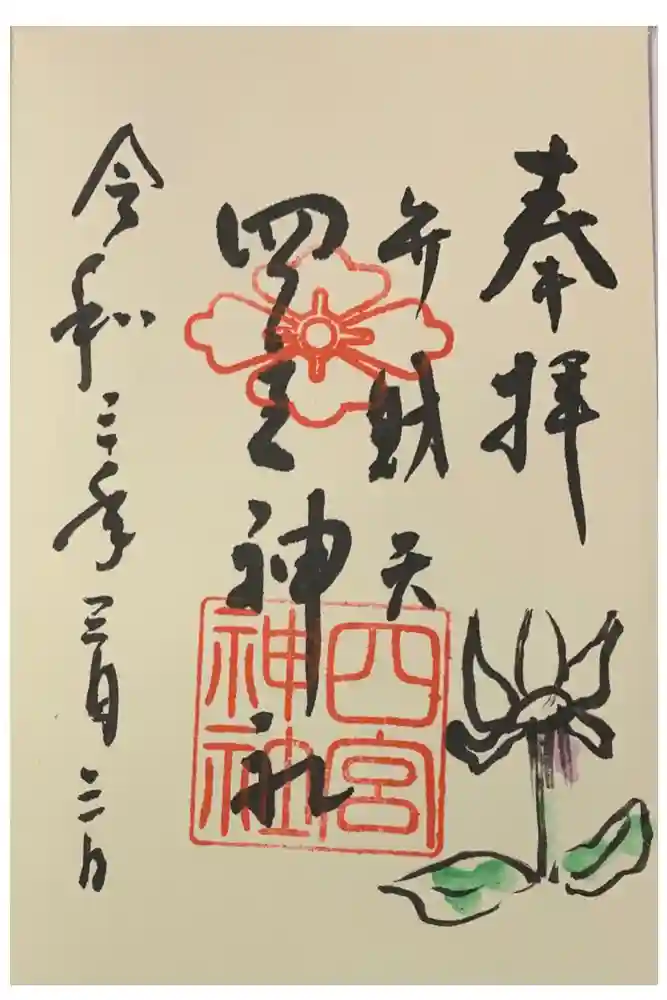 奉拝
弁財天
四宮神社
令和三年三月二日
四宮
神社